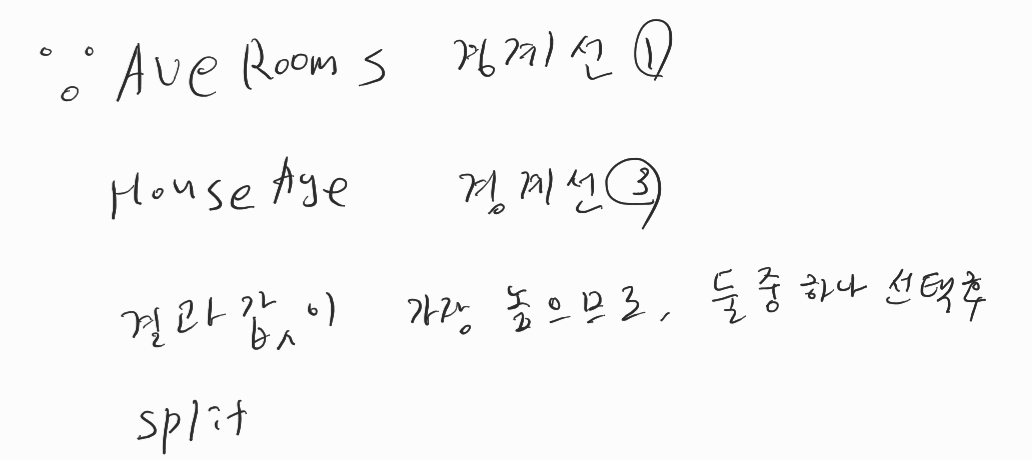 ∵ AveRooms 경계선 ①
HouseAge 경계선 ③
결과값이 가장 높으므로, 둘중 하나 선택후
split